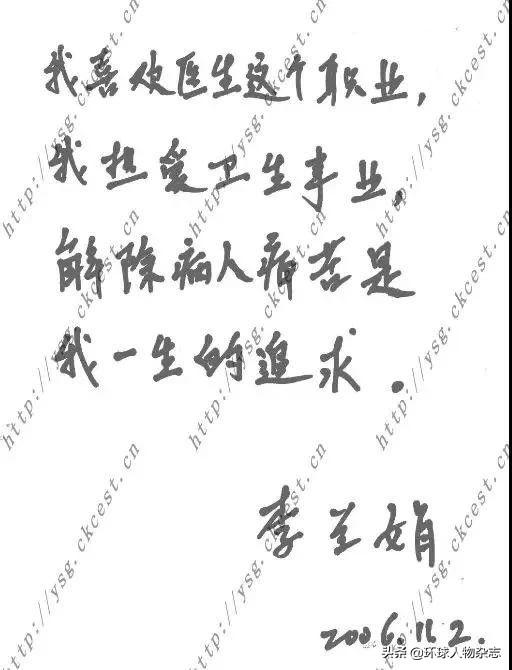 我喜欢医生这个职业，
我热爱卫生事业，
解除病人痛苦是
我一生的追求．
李兰娟
2006.11.2.
头条@环球人物杂志
http://ysg.ckcest.cn
http://ysg.ckcest.cn
http://ysg.ckcest.cn
http://ysg.ckcest.cn
http://ysg.ckcest.cn
http://ysg.ckcest.cn